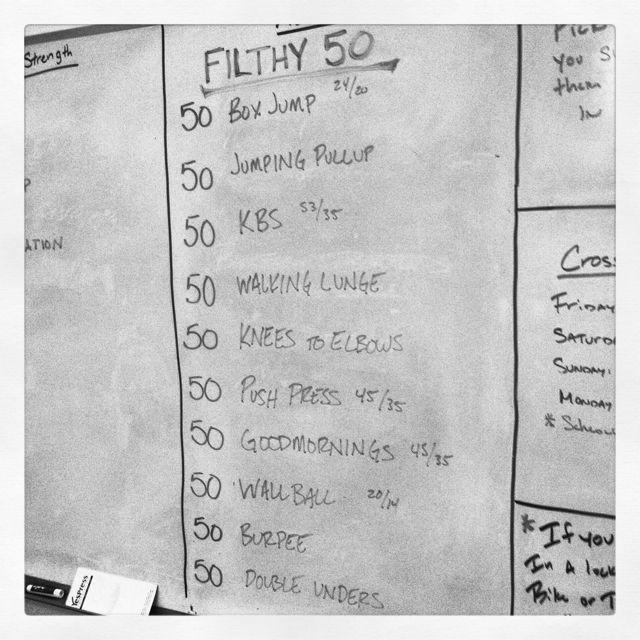 Strength
ATION
FILTHY 50
50 BOX JUMP 24/20
50 JUMPING PULLUP
50 KBS 53/35
50 WALKING LUNGE
50 KNEES TO ELBOWS
50 PUSH PRESS 45/35
50 GOODMORNINGS 45/35
50 WALLBALL 20/14
50 BURPEE
50 DOUBLE UNDERS
you S
them
IN
Cros
Friday
Saturd
Sunday,
Monday
* Schedu
* If you
In A lock
Bike or T